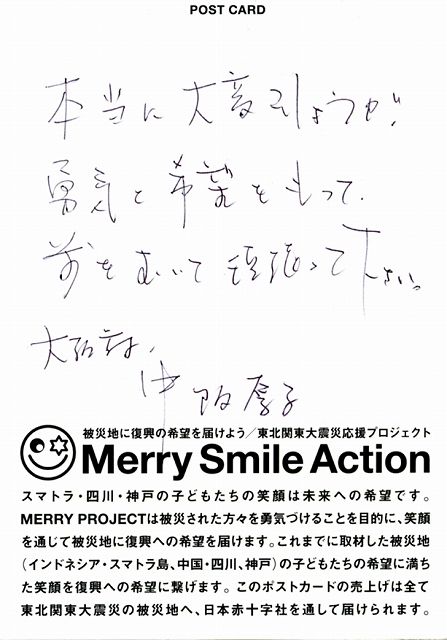 POST CARD
本当に大変でしょうが、
勇気と希望をもって、
前をむいて頑張って下さい。
大阪
中
子
被災地に復興の希望を届けよう／東北関東大震災応援プロジェクト
Merry Smile Action
スマトラ・四川・神戸の子どもたちの笑顔は未来への希望です。
MERRY PROJECTは被災された方々を勇気づけることを目的に、笑顔
を通じて被災地に復興への希望を届けます。これまでに取材した被災地
（インドネシア・スマトラ島、中国・四川、神戸）の子どもたちの希望に満ち
た笑顔を復興への希望に繋げます。このポストカードの売上げは全て
東北関東大震災の被災地へ、日本赤十字社を通して届けられます。